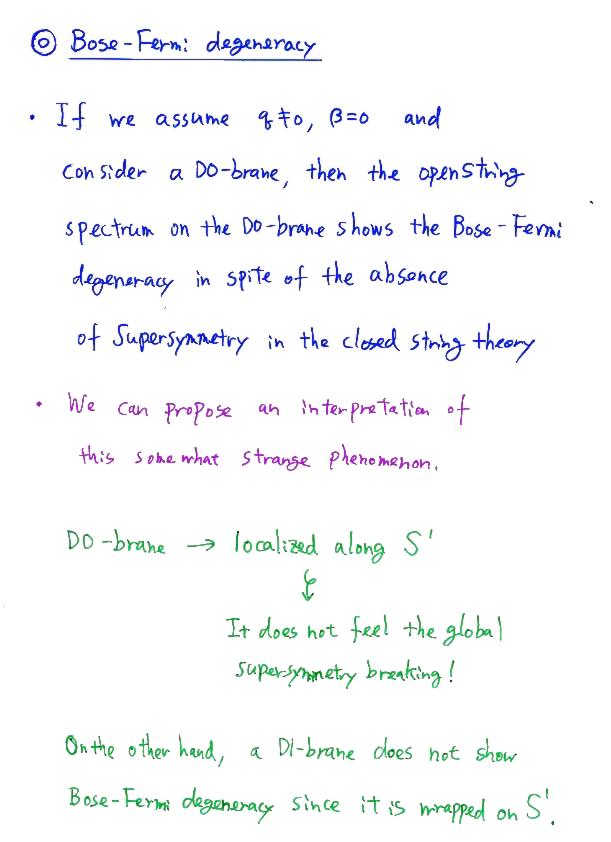 ◎ Bose-Fermi degeneracy
• If we assume q≠0, β=0 and
consider a D0-brane, then the open string
spectrum on the D0-brane shows the Bose-Fermi
degeneracy in spite of the absence
of Supersymmetry in the closed string theory
• We can propose an interpretation of
this somewhat strange phenomenon.
D0-brane → localized along S¹
↓
It does not feel the global
supersymmetry breaking!
On the other hand, a D1-brane does not show
Bose-Fermi degeneracy since it is wrapped on S¹.